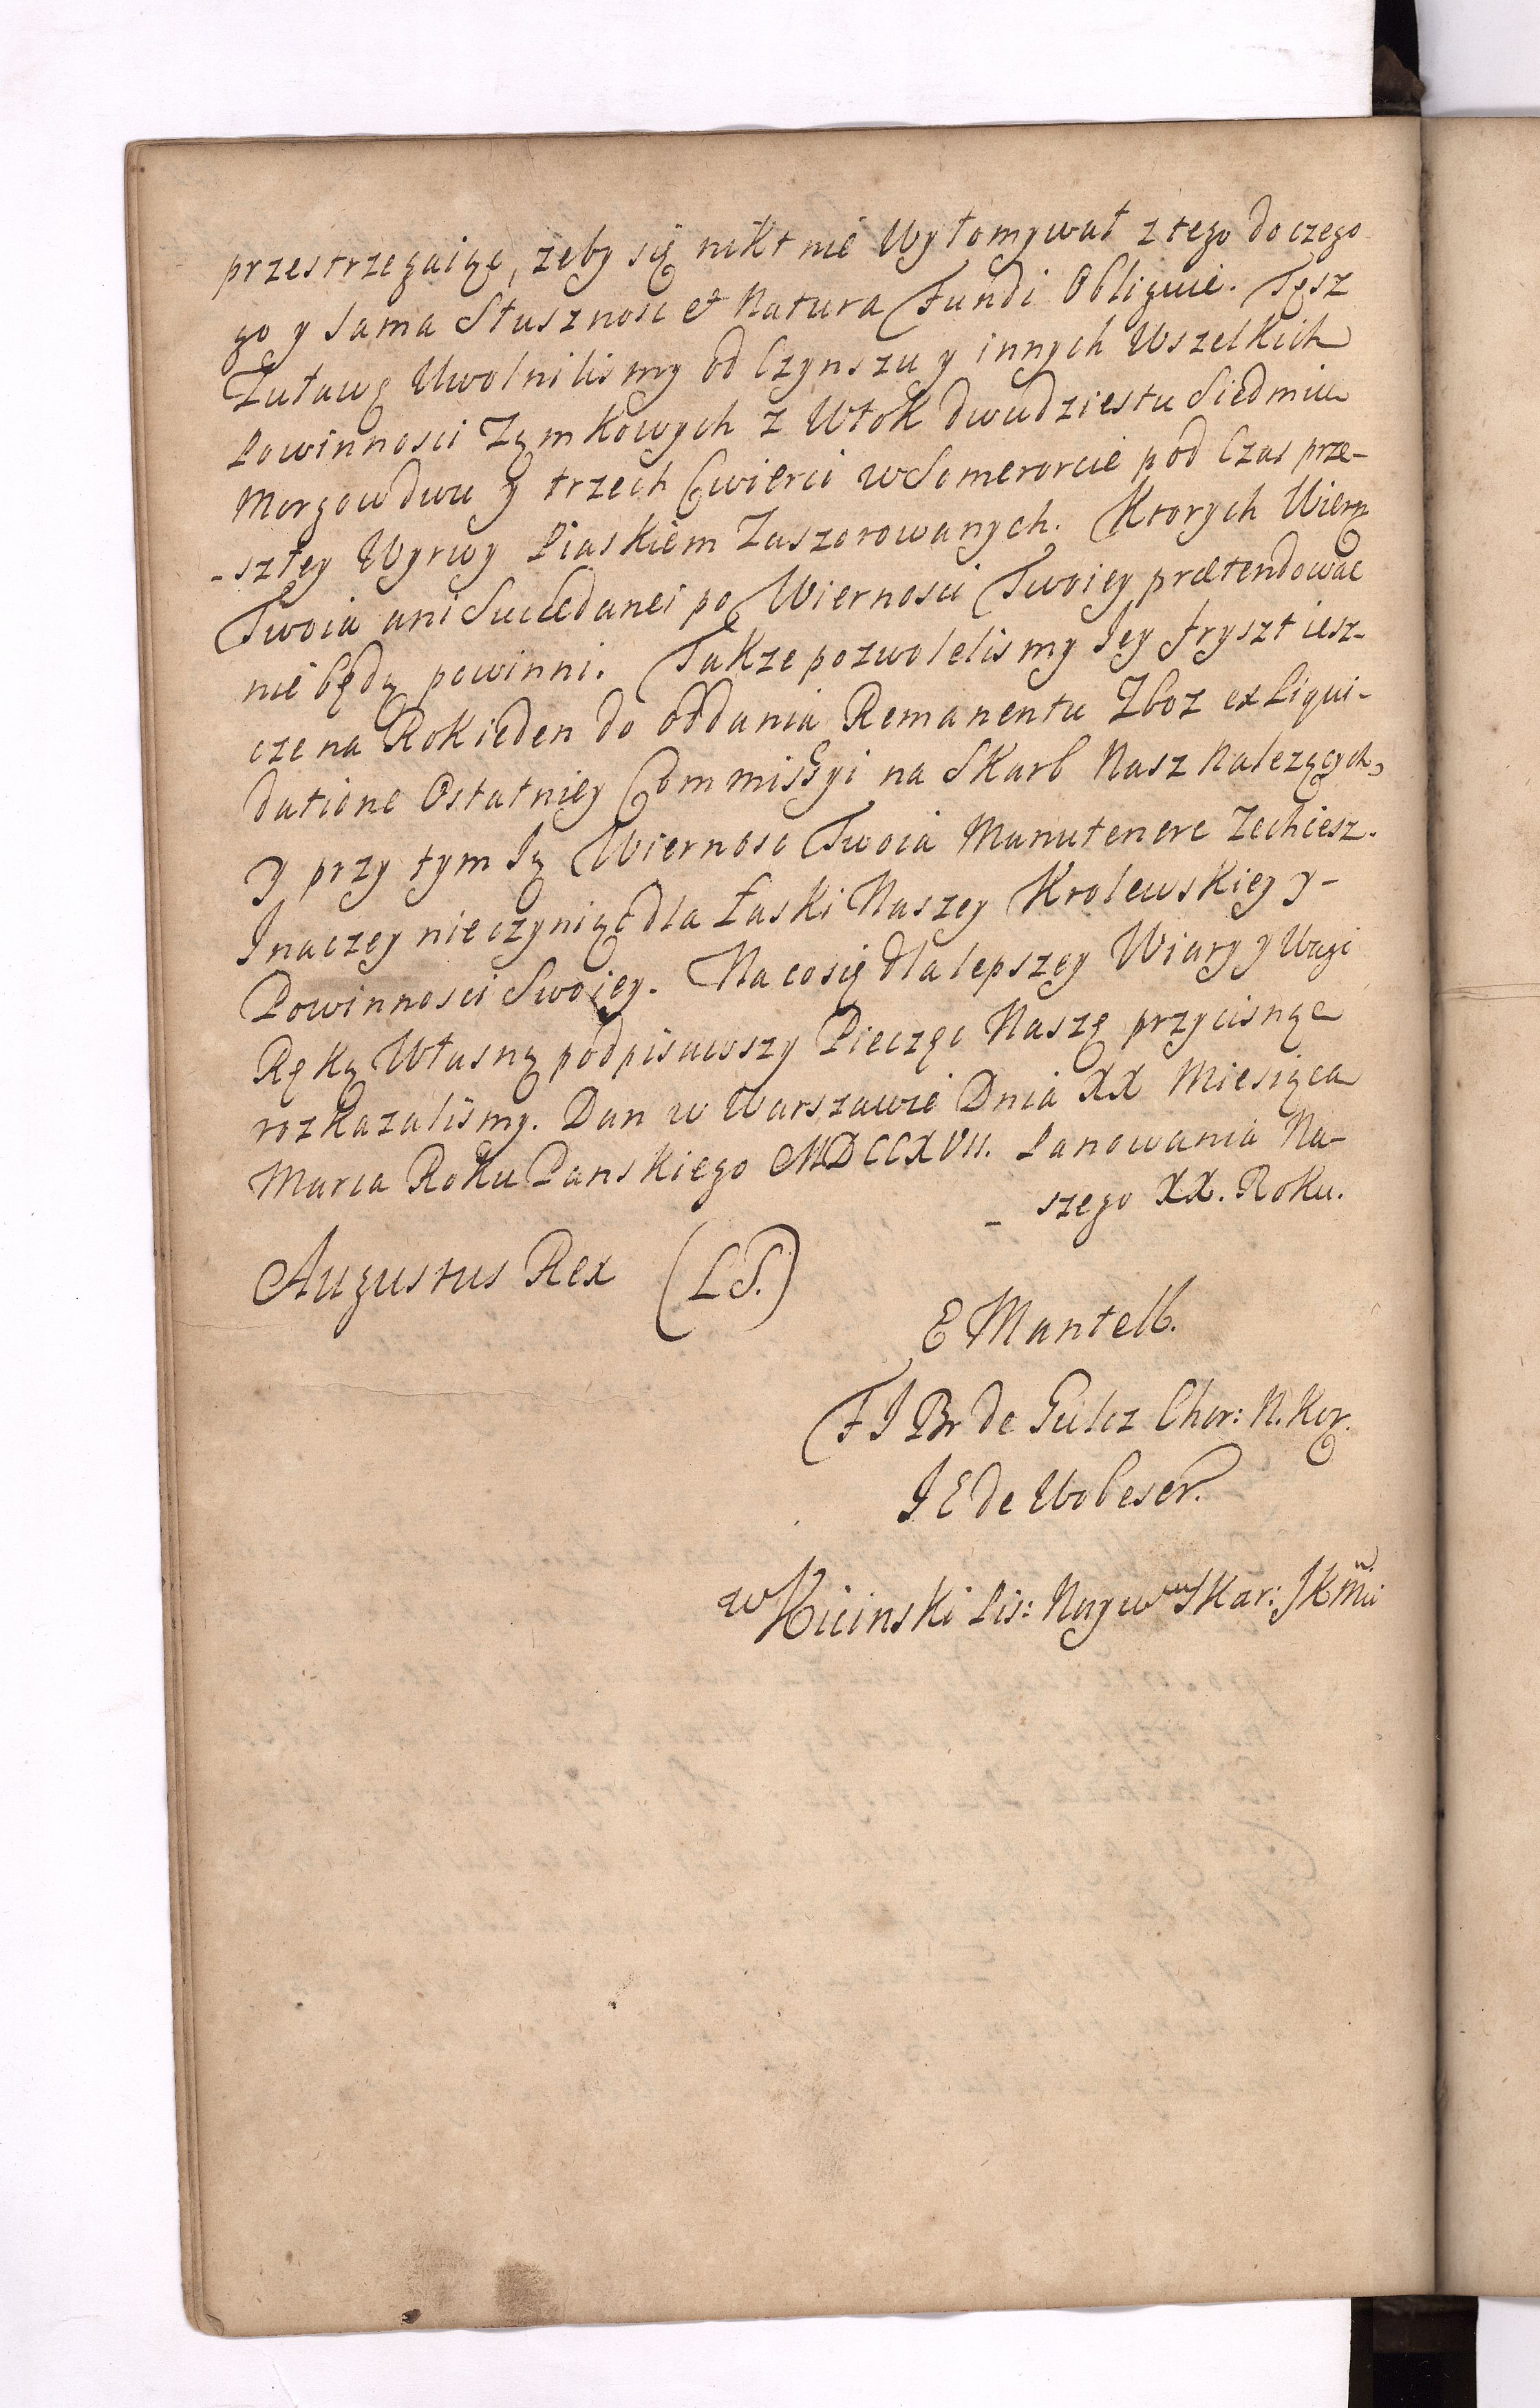 przestrzegaiąc, zeby się nikt nie Wyłomywał z tego do czego
go y sama Słusznosc et Natura Fundi Obliguie. Tęsz
Zuławę Uwolnilismy od Czynszu y innych Wszelkich
Powinnosci Zamkowych z Włok dwudziestu Siedmiu
Morgow dwu y trzech Cwierci w Somerorcie pod Czas prze-
-szłey Wyrwy Piaskiem Zaszorowanych. Ktorych Wiern
Twoia ani Succedanei po Wiernosci Twoiey prætendowac
nie będą powinni. Takze pozwolelismy Jey fryszt iesz-
cze na Rok ieden do oddania Remanentu Zboz ex Liqui-
datione Ostatniey Commissyi na Skarb Nasz Nalezących,
y przy tym Ią Wiernosc Twoia Manutenere Zechcesz.
Inaczey nie czyniąc dla Łaski Naszey Krolewskiey y-
Powinnosci Swoiey. Na co się dla lepszey Wiary y Wagi
Ręką Własną podpisawszy Pieczęc Naszę przycisnąc
rozkazalismy. Dan w Warszawie Dnia XX Miesiąca
Marca Roku Panskiego MDCCXVII. Panowania Na-
- szego XX. Roku.
Augustus Rex (LS.)
E Mantell.
F J Br de Gulcz Chor: N. Kor.
J E de Wobeser.
Kicinski Pis: Nayw Skar: JKMci